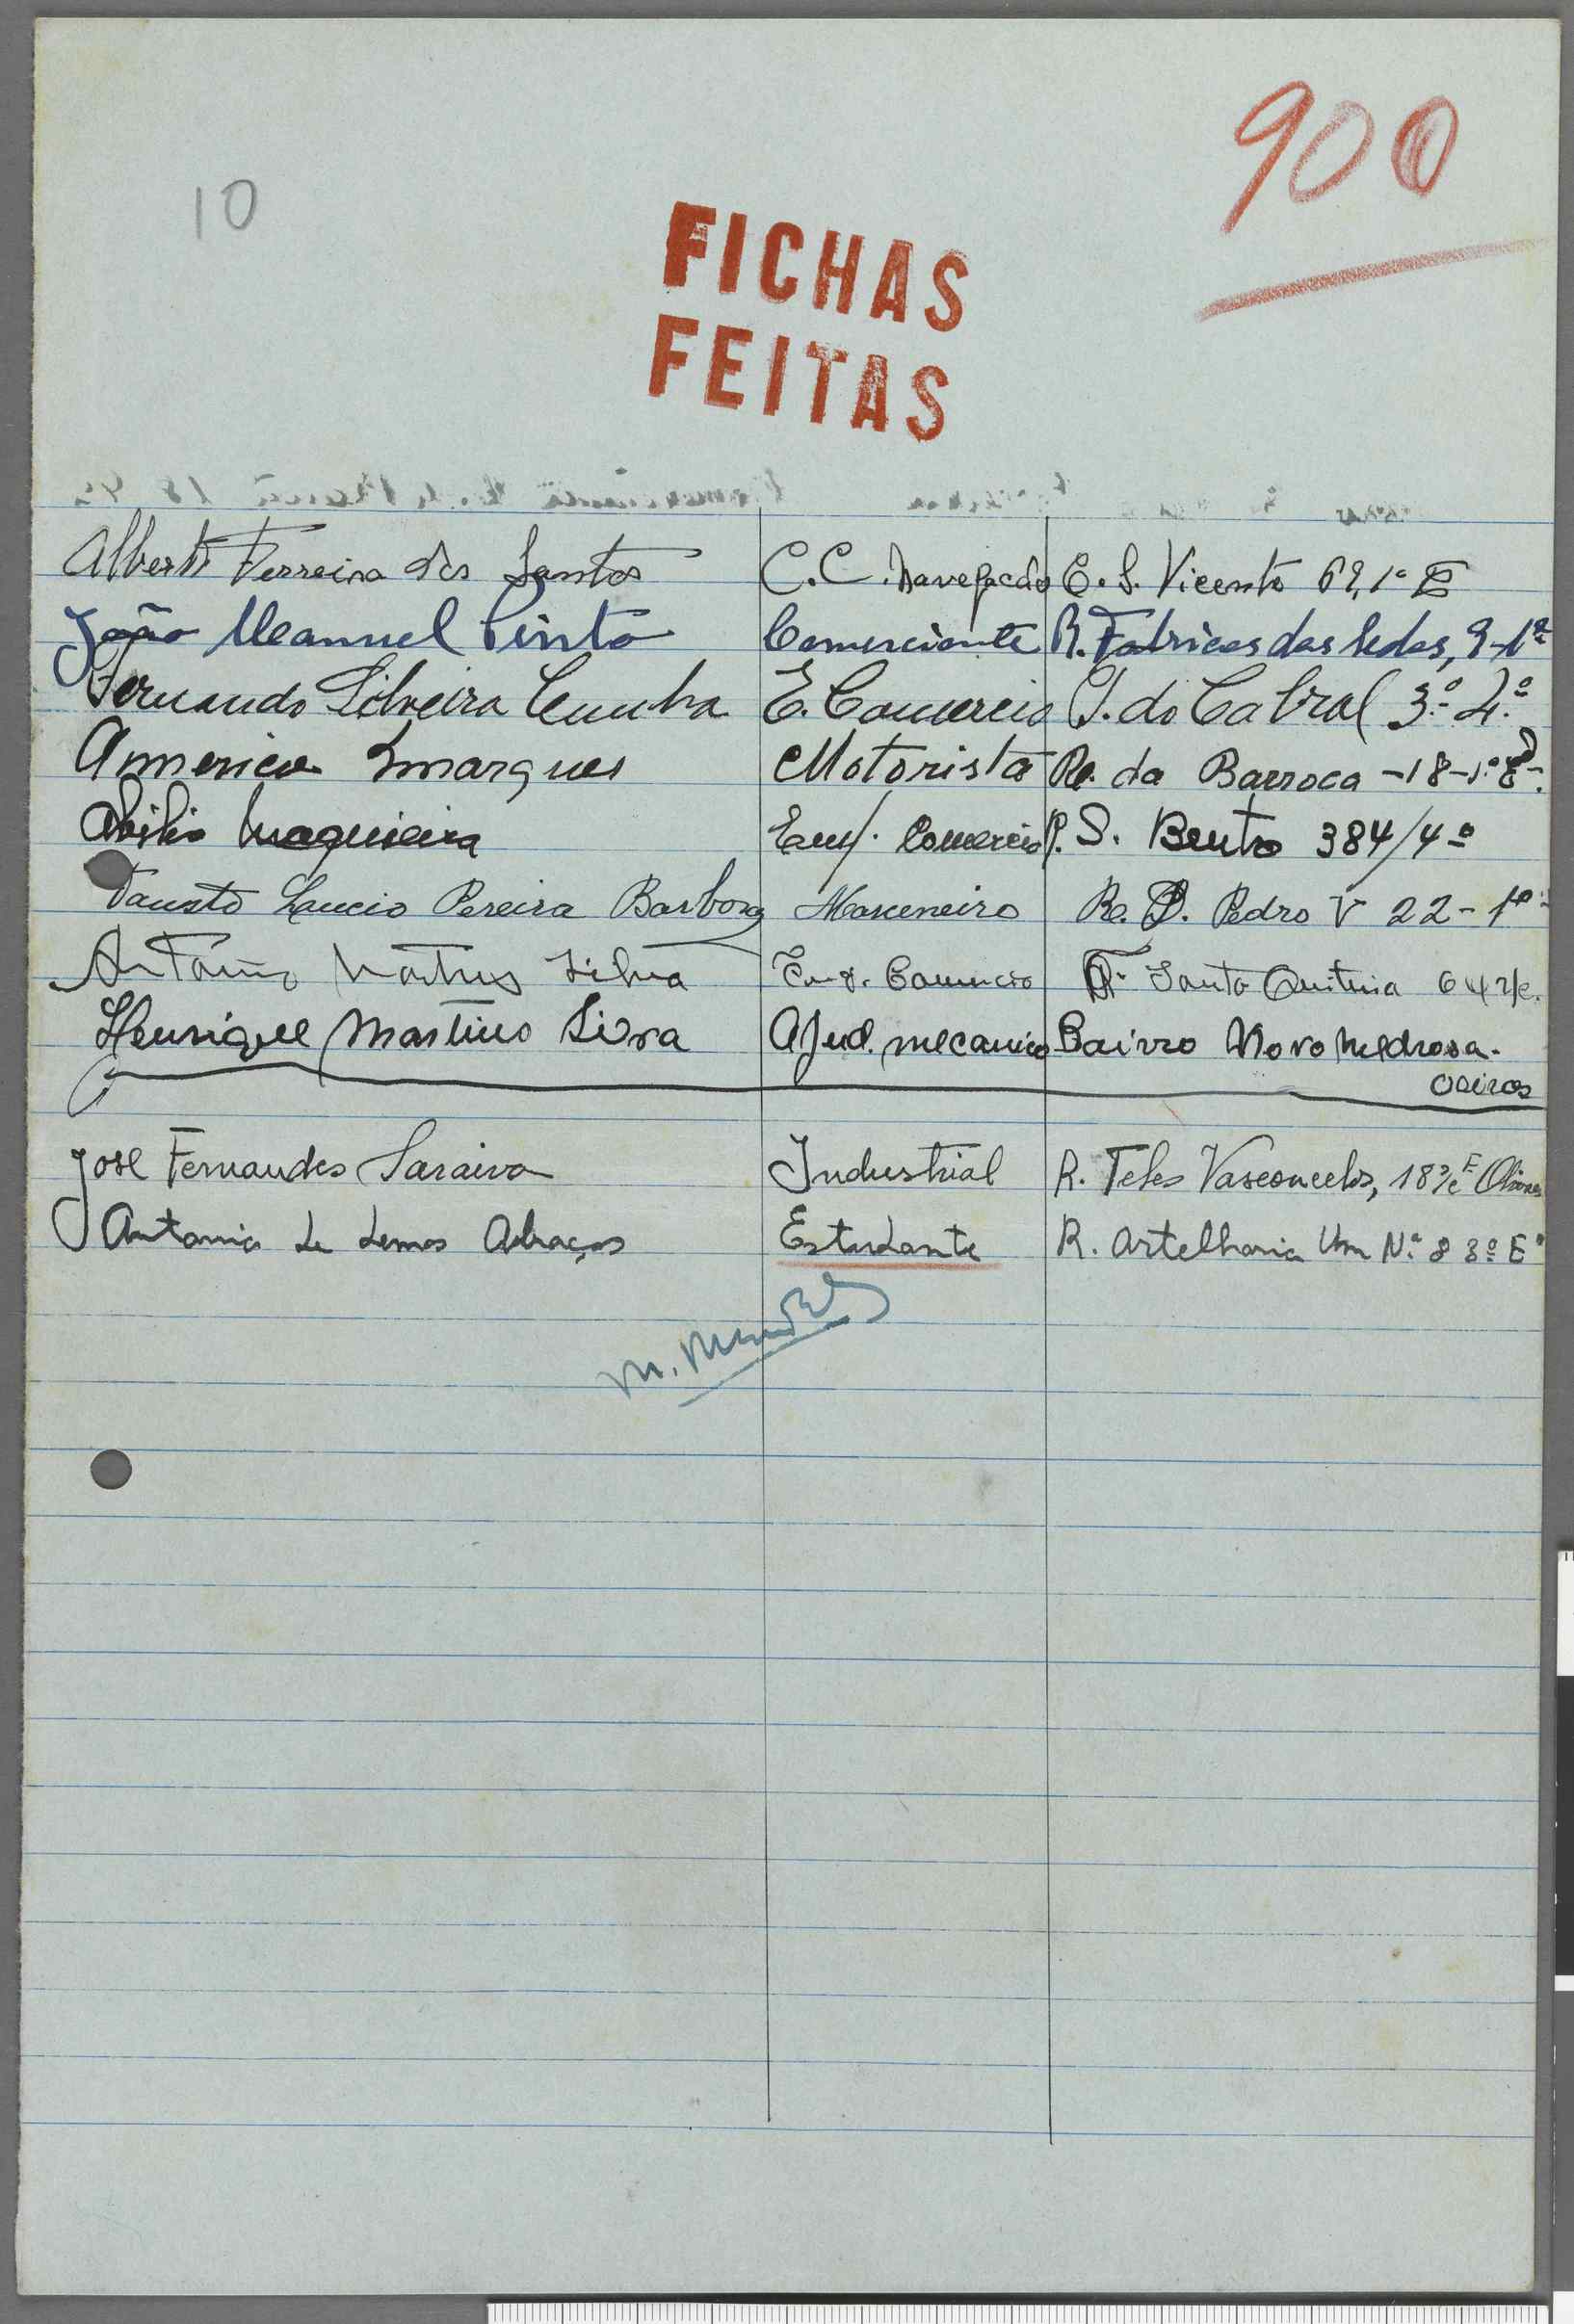 900
10
FICHAS
FEITAS
Alberto Ferreira dos Santos C.C. Navegacão E. S. Vicente 69, 1º E
João Manuel Pinto Comerciante R. Fabricas das Sedas, 9-1º
Fernando Silveira Cunha E. Comercio T. do Cabral 3º 2º
Americo Marques Motorista R. da Barroca -18-1º E
Abilio Emp. Comercio R. S. Bento 384/4º
Fausto Lucio Pereira Barbosa Marceneiro R. D. Pedro V 22-1º
António Martins Silva Emp. Comercio Santa Quitéria 64 r/c.
Henrique Martins Lisra Ajud. mecanico Bairro Novo Medrosa.
Oeiras
José Fernandes Saraiva Industrial R. Teles Vasconcelos, 18 r/c E
Antonio de Lemos Abraços Estudante R. Artelharia Um Nº 8 3º Eº